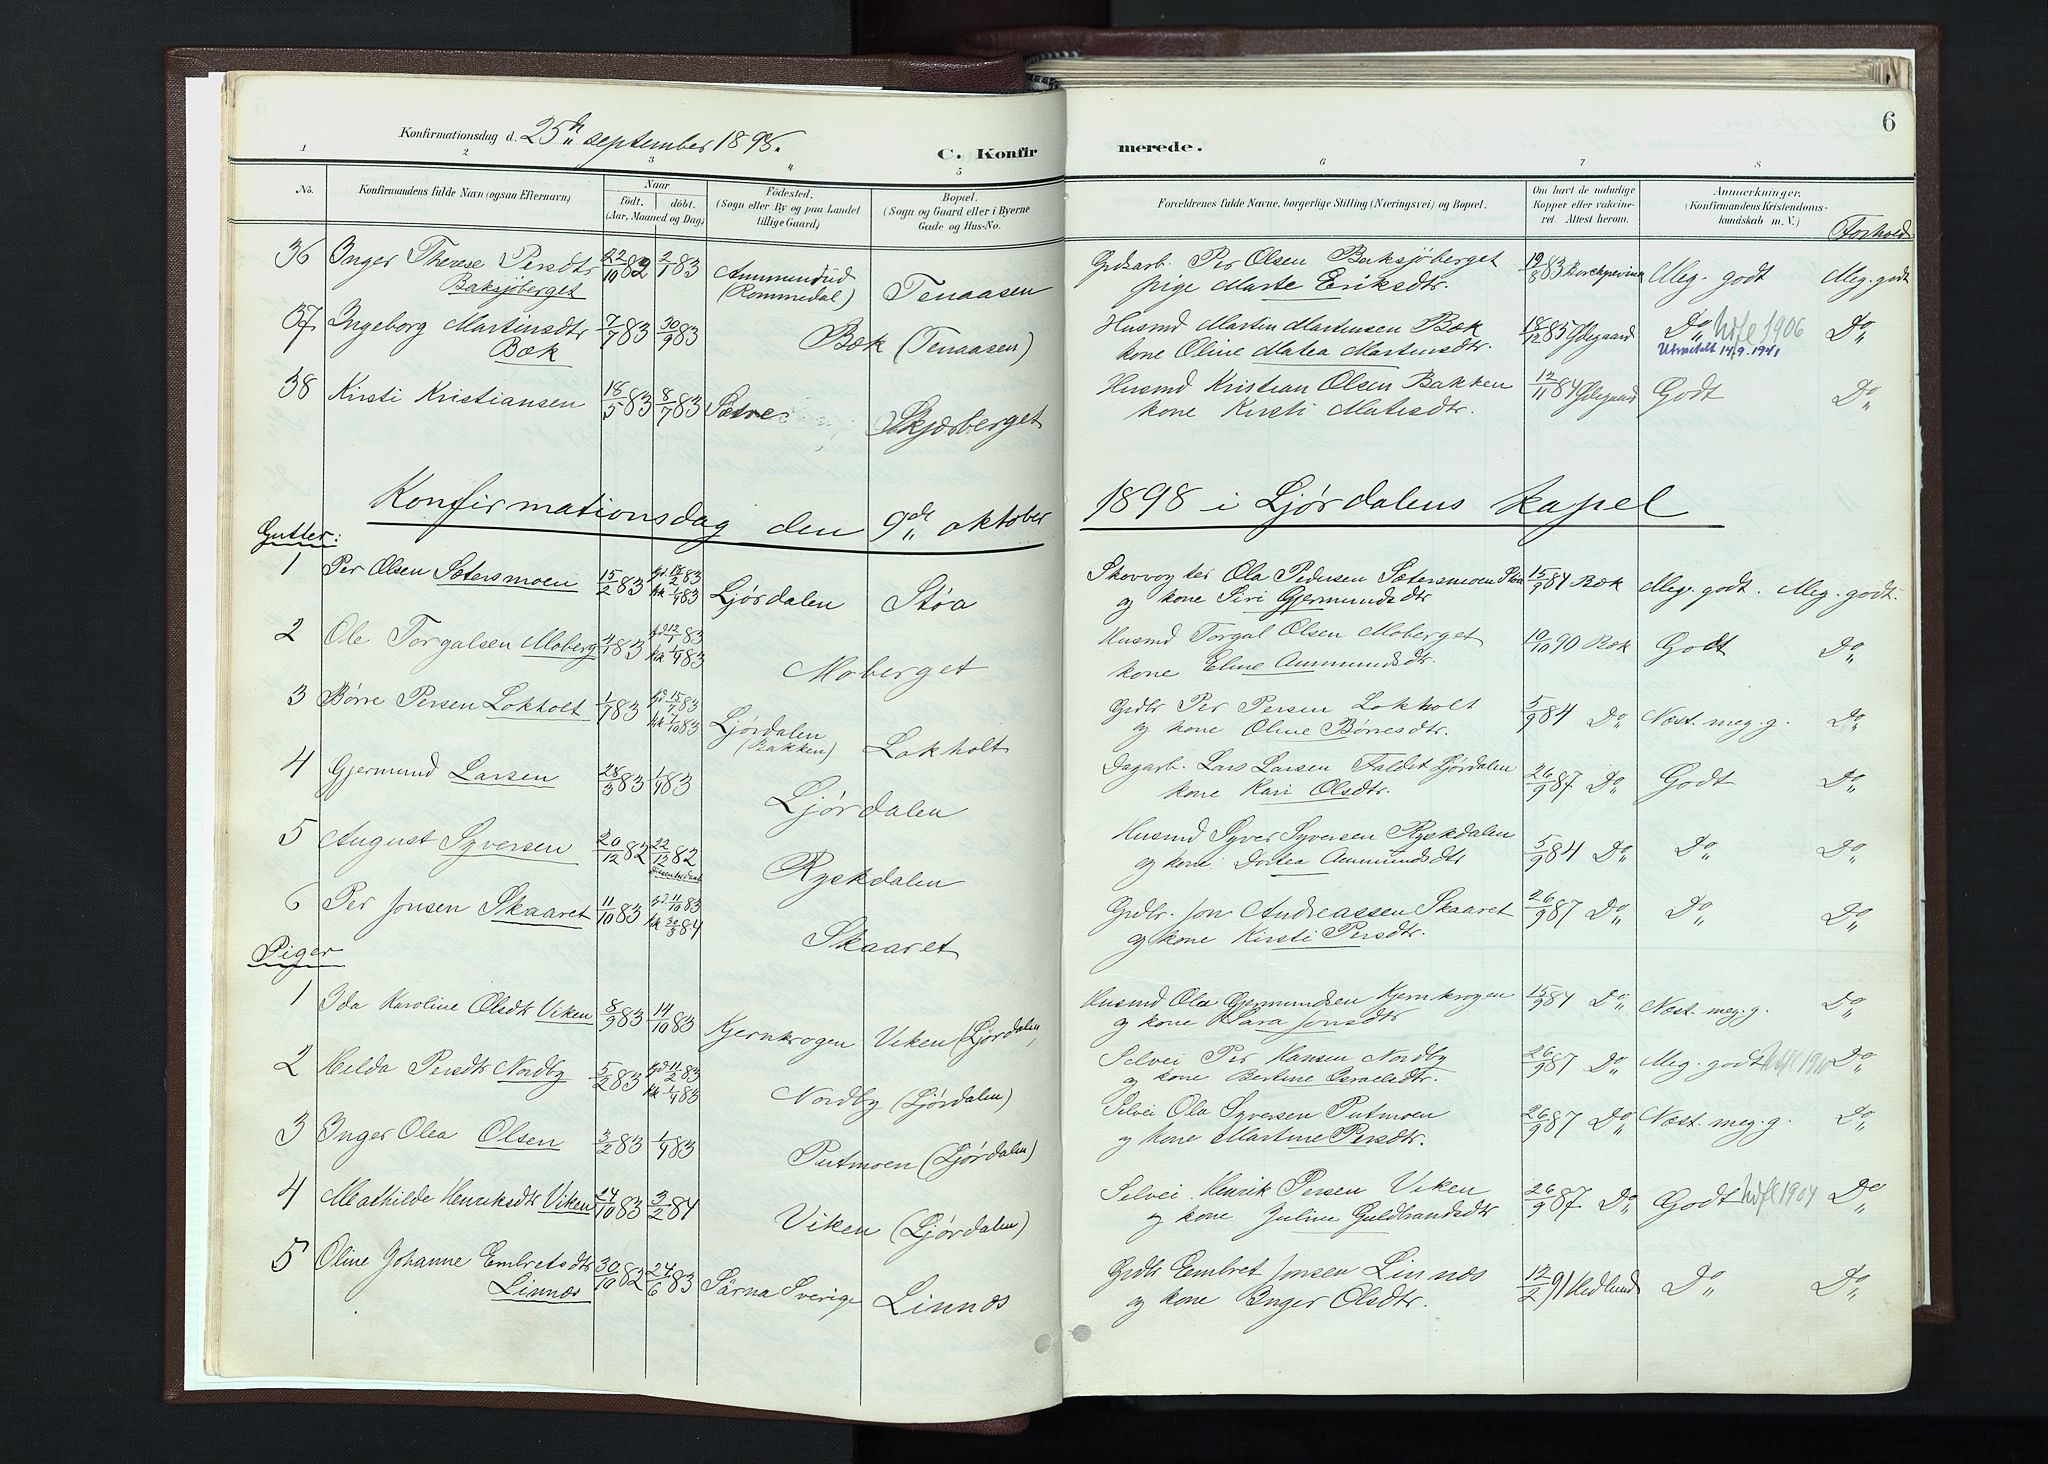 6
Konfirmationsdag d. 25de september 1898.
C. Konfirmerede.
1 2 3 4 5 6 7 8
No. Konfirmandens fulde Navn (ogsaa Efternavn) Naar födt. döbt. (Aar, Maaned og Dag) Födested. (Sogn eller By og paa Landet tillige Gaard) Bopæl. (Sogn og Gaard eller i Byerne Gade og Hus-No. Forældrenes fulde Navne, borgerlige Stilling (Næringsvei) og Bopæl. Om havt de naturlige Kopper eller vakcineret. Attest herom. Anmærkninger, (Konfirmandens Kristendomskundskab m. V.) Forhold.
36 Inger Therese Persdtr 22/10 82 2/1 83 Ammundrud (Rommedal) Tenaasen Grdsarb. Per Olsen Baksjöberget 19/8 83 Meg. godt Meg. godt
Baksjöberget pige Marte Eriksdtr.
37 Ingeborg Martinsdtr 7/7 83 30/9 83 Bæk (Tenaasen) Husmd Martin Martinsen Bæk 18/12 85 Ødegaard Do Indfl 1906 Do
Bæk kone Oline Matea Martinsdtr. Utmeldt 14.9.1941
38 Kirsti Kristiansen 18/5 83 8/7 83 Sætre Skjærberget Husmd Kristian Olsen Bakken 12/11 84 Ødegaard Godt Do
kone Kirsti Matisdtr.
Konfirmationsdag den 9de oktober 1898 i Ljørdalens kapel
Gutter:
1 Per Olsen Sætersmoen 15/2 83 gd 18/2 83 kk 1/4 83 Ljørdalen Støa Skovvogter Ola Pedersen Sætersmoen Støa 15/9 84 Bæk Meg. godt. Meg. godt.
og kone Siri Gjermundsdtr
2 Ole Torgalsen Moberg 4/1 83 gd 12/1 83 kk 1/4 83 Moberget Husmd Torgal Olsen Moberget 10/10 90 Bæk Godt Do
kone Eline Ammundsdtr.
3 Børre Persen Lokholt 1/7 83 gd 15/7 83 kk 7/10 83 Ljørdalen (Bakken) Lokholt Grdbr Per Persen Lokholt 5/9 84 Do Næst. meg. g. Do
og kone Oline Børresdtr.
4 Gjermund Larsen 28/3 83 1/4 83 Ljørdalen Dagarb. Lars Larsen Faldet Ljørdalen 26/9 87 Do Godt Do
kone Kari Olsdtr.
5 August Syversen 20/12 82 22/12 82 Ryskdalen Husmd Syver Syversen Ryskdalen 5/9 84 Do Do Do
og kone Dortea Ammundsdtr
6 Per Jonsen Skaaret 11/10 83 gd 11/10 83 kk 30/3 84 Skaaret Grdbr. Jon Andreassen Skaaret 26/9 87 Do Do Do
og kone Kirsti Persdtr.
Piger
1 Ida Karoline Olsdtr Viken 8/9 83 14/10 83 Kjernkrogen Viken (Ljørdalen) Husmd Ola Gjermundsen Kjernkrogen 15/9 84 Do Næst. meg. g. Do
og kone Sara Jonsdtr
2 Hilda Persdtr Nordby 5/2 83 gd 11/2 83 kk 1/4 83 Nordby (Ljørdalen) Selvei Per Hansen Nordby 26/9 87 Do Meg. godt Do
og kone Bertine Israelsdtr.
3 Inger Olea Olsen 3/2 83 1/4 83 Putmoen (Ljørdalen) Selvei Ola Syversen Putmoen 26/9 87 Do Næst. meg. g. Do
og kone Martine Persdtr.
4 Mathilde Henriksdtr Viken 24/10 83 3/2 84 Viken (Ljørdalen) Selvei. Henrik Persen Viken 26/9 87 Do Godt Indfl 1904 Do
og kone Juline Guldbrandsdtr
5 Oline Johanne Embretsdtr 30/10 82 24/6 83 Särna Sverige Linnæs Grdbr Embret Jonsen Linnæs 12/2 91 Hedlund Do Do
Linnæs og kone Inger Olsdtr.